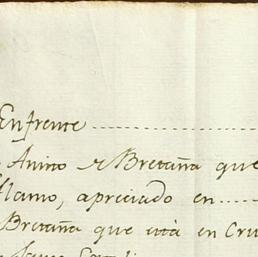 Enfrente ..................
Anino y Bretaña que
llamo, apreciado en......
Bretaña que está en Cru